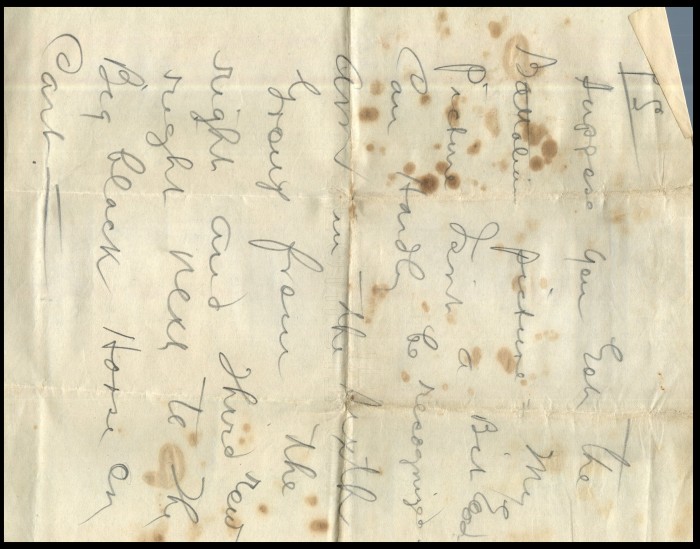 PS
suppose you Got the
Battalion picture My
Picture Isnt a Bit Good
Can Hardly be recognized
Am in the fifth
Group from the
right and Third row
right next to the
Big black Horse on
Cart